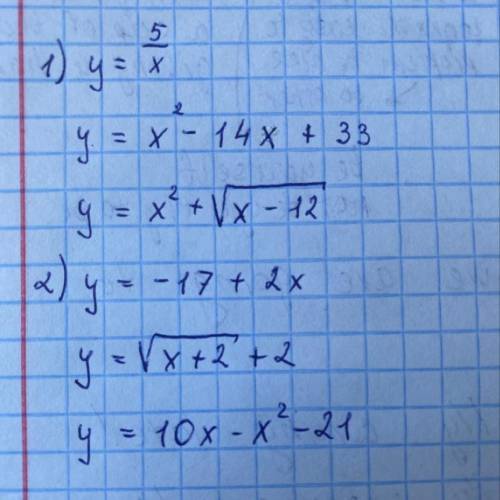 1) y = 5/x
y = x² - 14x + 33
y = x² + √(x - 12)
2) y = -17 + 2x
y = √(x + 2) + 2
y = 10x - x² - 21